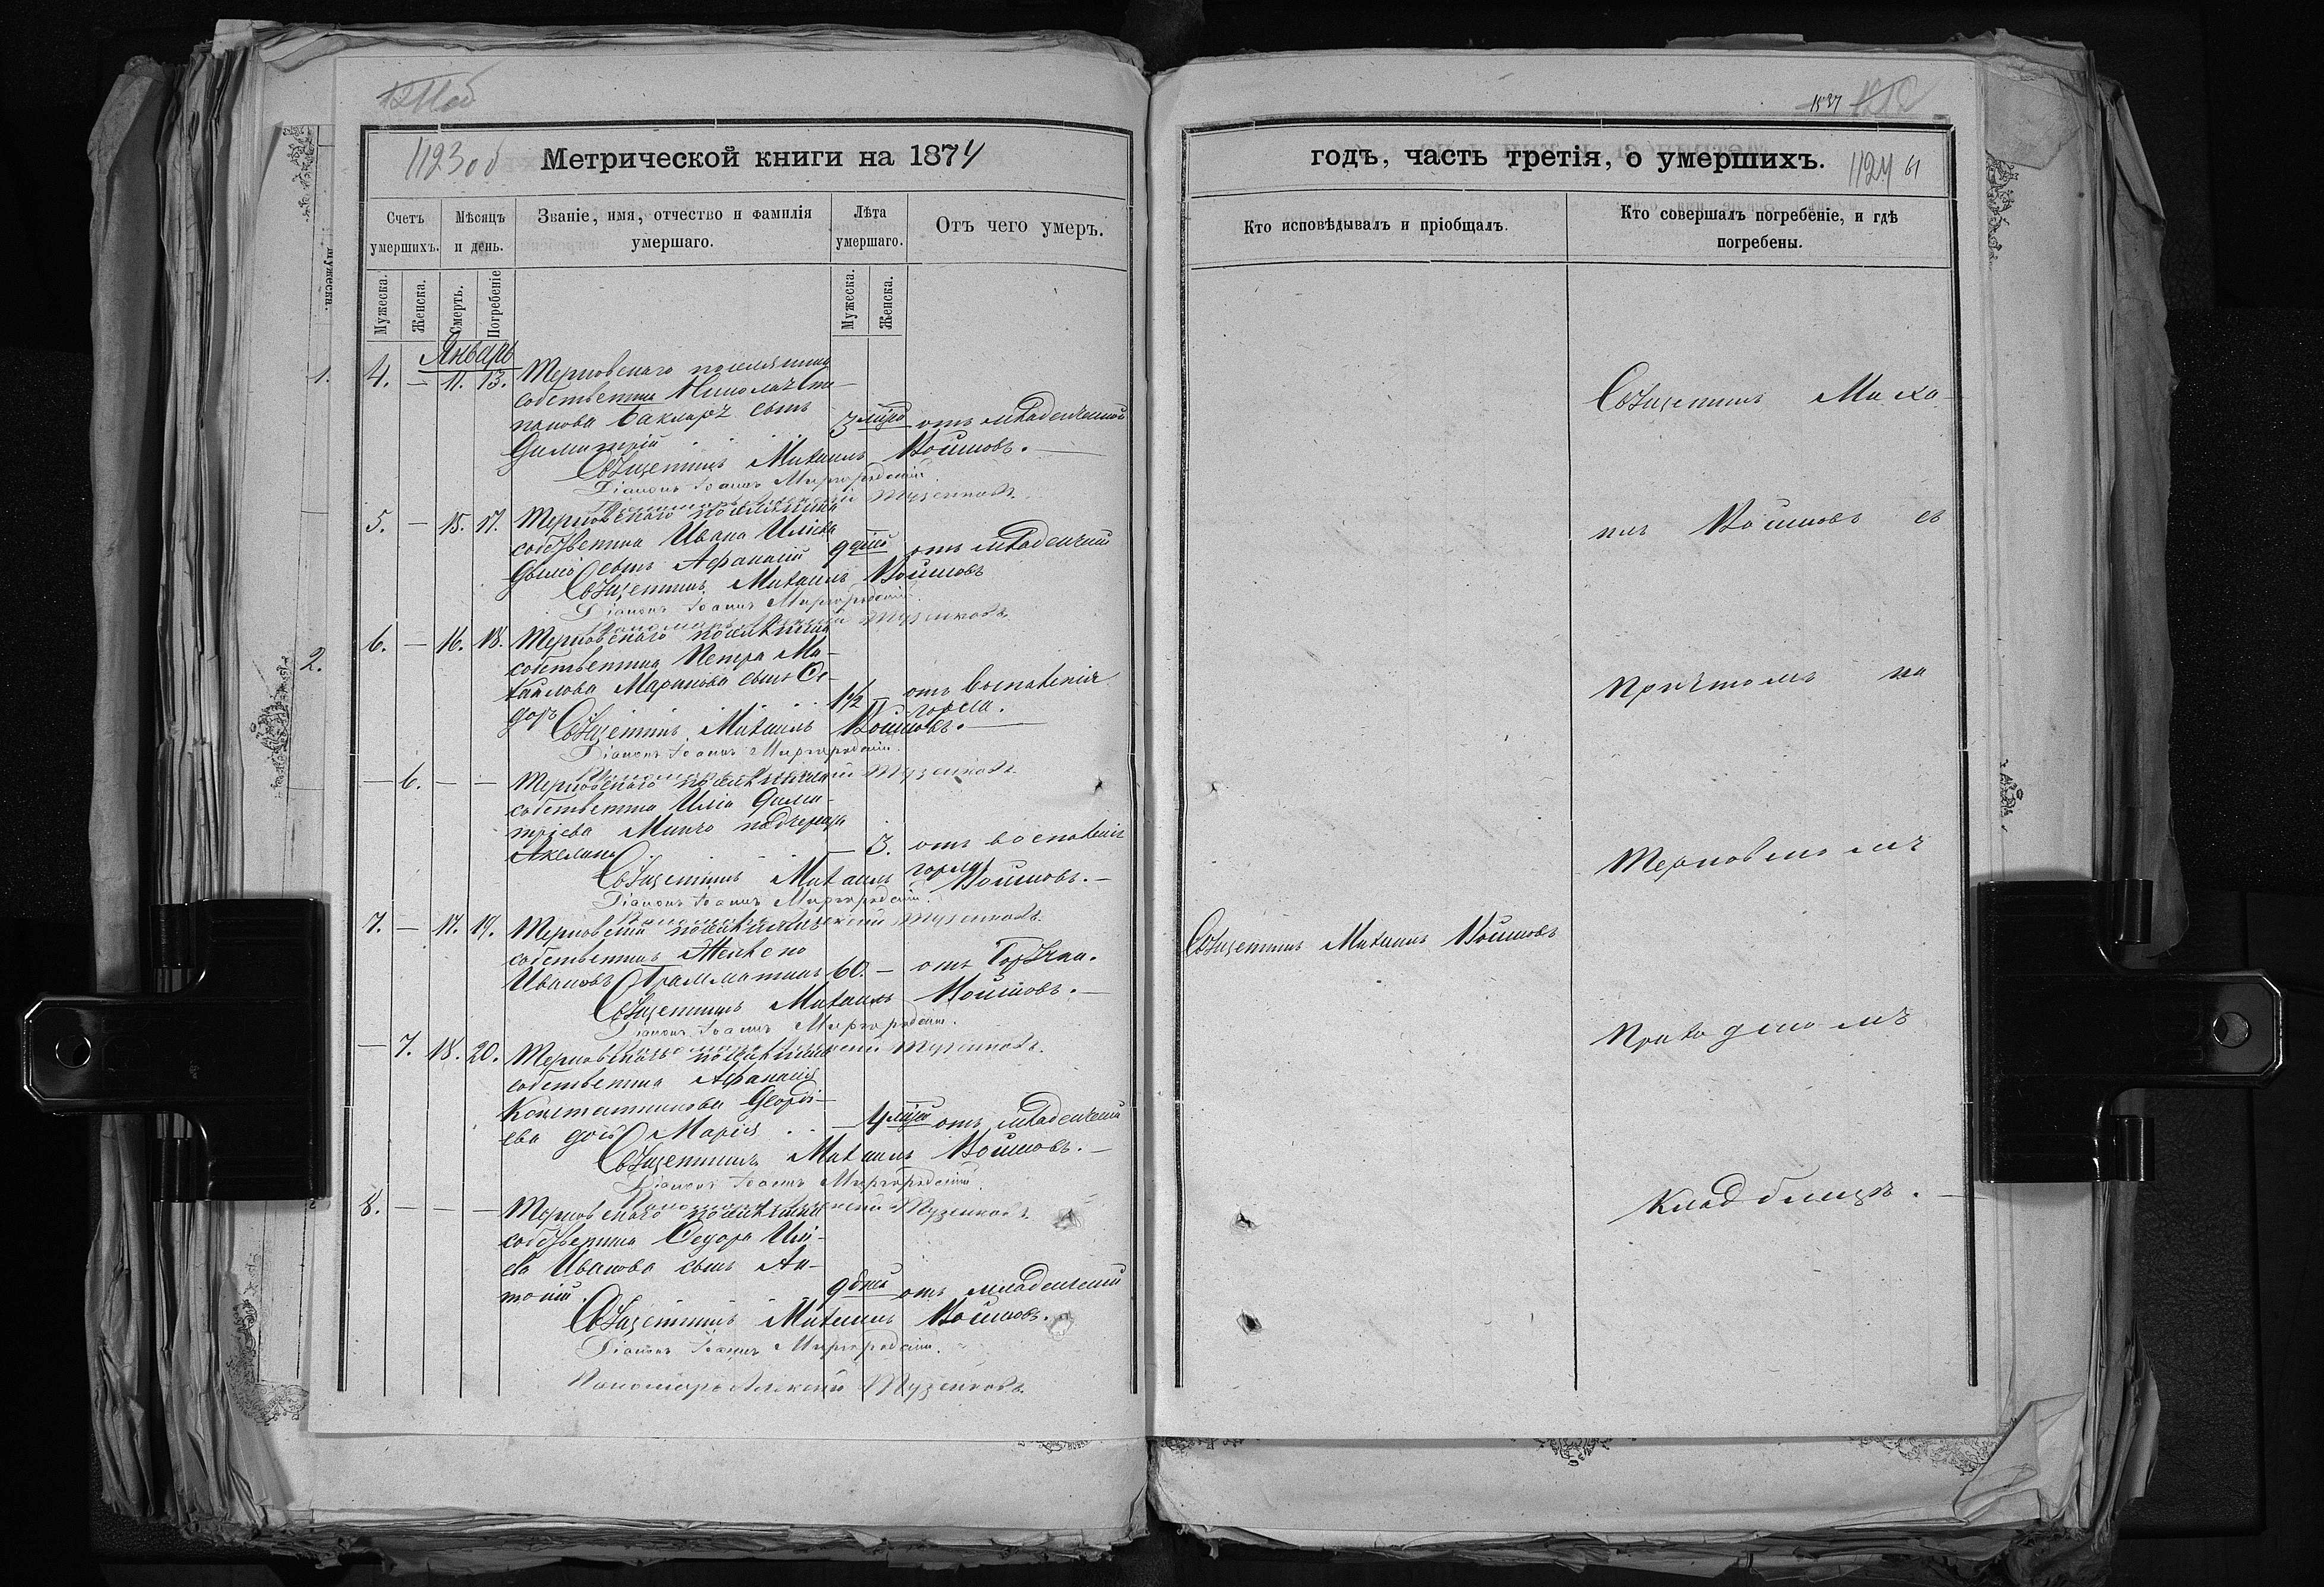 1123 об
Метрической книги на 1874
Счетъ умершихъ.
Мѣсяцъ и день.
Званіе, имя, отчество и фамилія умершаго.
Лѣта умершаго.
Отъ чего умеръ.
Мужеска.
Женска.
Смерть.
Погребеніе
Мужеска.
Женска.
Январь
4. — 11. 13. Терновскаго поселянина
собственника Николая Сте-
панова Бакларъ сынъ
Димитрій 3 мѣся отъ младенческой
Священникъ Михаилъ Войновъ.
Діаконъ Іоаннъ Миргородскій.
Пономарь Алексій Тузенковъ.
5. — 15. 17. Терновскаго поселянина
собственника Ивана Иліева
сынъ Афанасій 9 дней отъ младенческой
Священникъ Михаилъ Войновъ
Діаконъ Іоаннъ Миргородскій.
Пономарь Алексій Тузенковъ.
6. — 16. 18. Терновскаго поселянина
собственника Петра Ми-
хайлова Маринова сынъ Ѳе-
доръ 1½ отъ воспаленія
горла.
Священникъ Михаилъ Войновъ.
Діаконъ Іоаннъ Миргородскій.
Пономарь Алексій Тузенковъ.
— 6. — — Терновскаго поселянина
собственника Иліи Дими-
тріева Минчо падчерица
— 3. отъ воспаленія
горла
Священникъ Михаилъ Войновъ.
Діаконъ Іоаннъ Миргородскій.
Пономарь Алексій Тузенковъ.
7. — 17. 19. Терновскій поселянинъ
собственникъ Желѣско
Ивановъ Грамматикъ 60. — отъ Горячки.
Священникъ Михаилъ Войновъ.
Діаконъ Іоаннъ Миргородскій.
Пономарь Алексій Тузенковъ.
— 7. 18. 20. Терновскаго поселянина
собственника Афанасія
Константинова Георгі-
ева дочь Марія — 4 мѣся отъ младенческой
Священникъ Михаилъ Войновъ.
Діаконъ Іоаннъ Миргородскій.
Пономарь Алексій Тузенковъ.
8. — — — Терновскаго поселянина
собственника Ѳедора Илі-
ева Иванова сынъ Ан-
тоній. 9 дней отъ младенческой
Священникъ Михаилъ Войновъ.
Діаконъ Іоаннъ Миргородскій.
Пономарь Алексій Тузенковъ.
1537
годъ, часть третія, о умершихъ.
1124 61
Кто исповѣдывалъ и пріобщалъ.
Кто совершалъ погребеніе, и гдѣ погребены.
Священникъ Миха-
илъ Войновъ съ
причтомъ на
Терновскомъ
Священникъ Михаилъ Войновъ
Приходскомъ
Кладбищѣ.
1.
2.